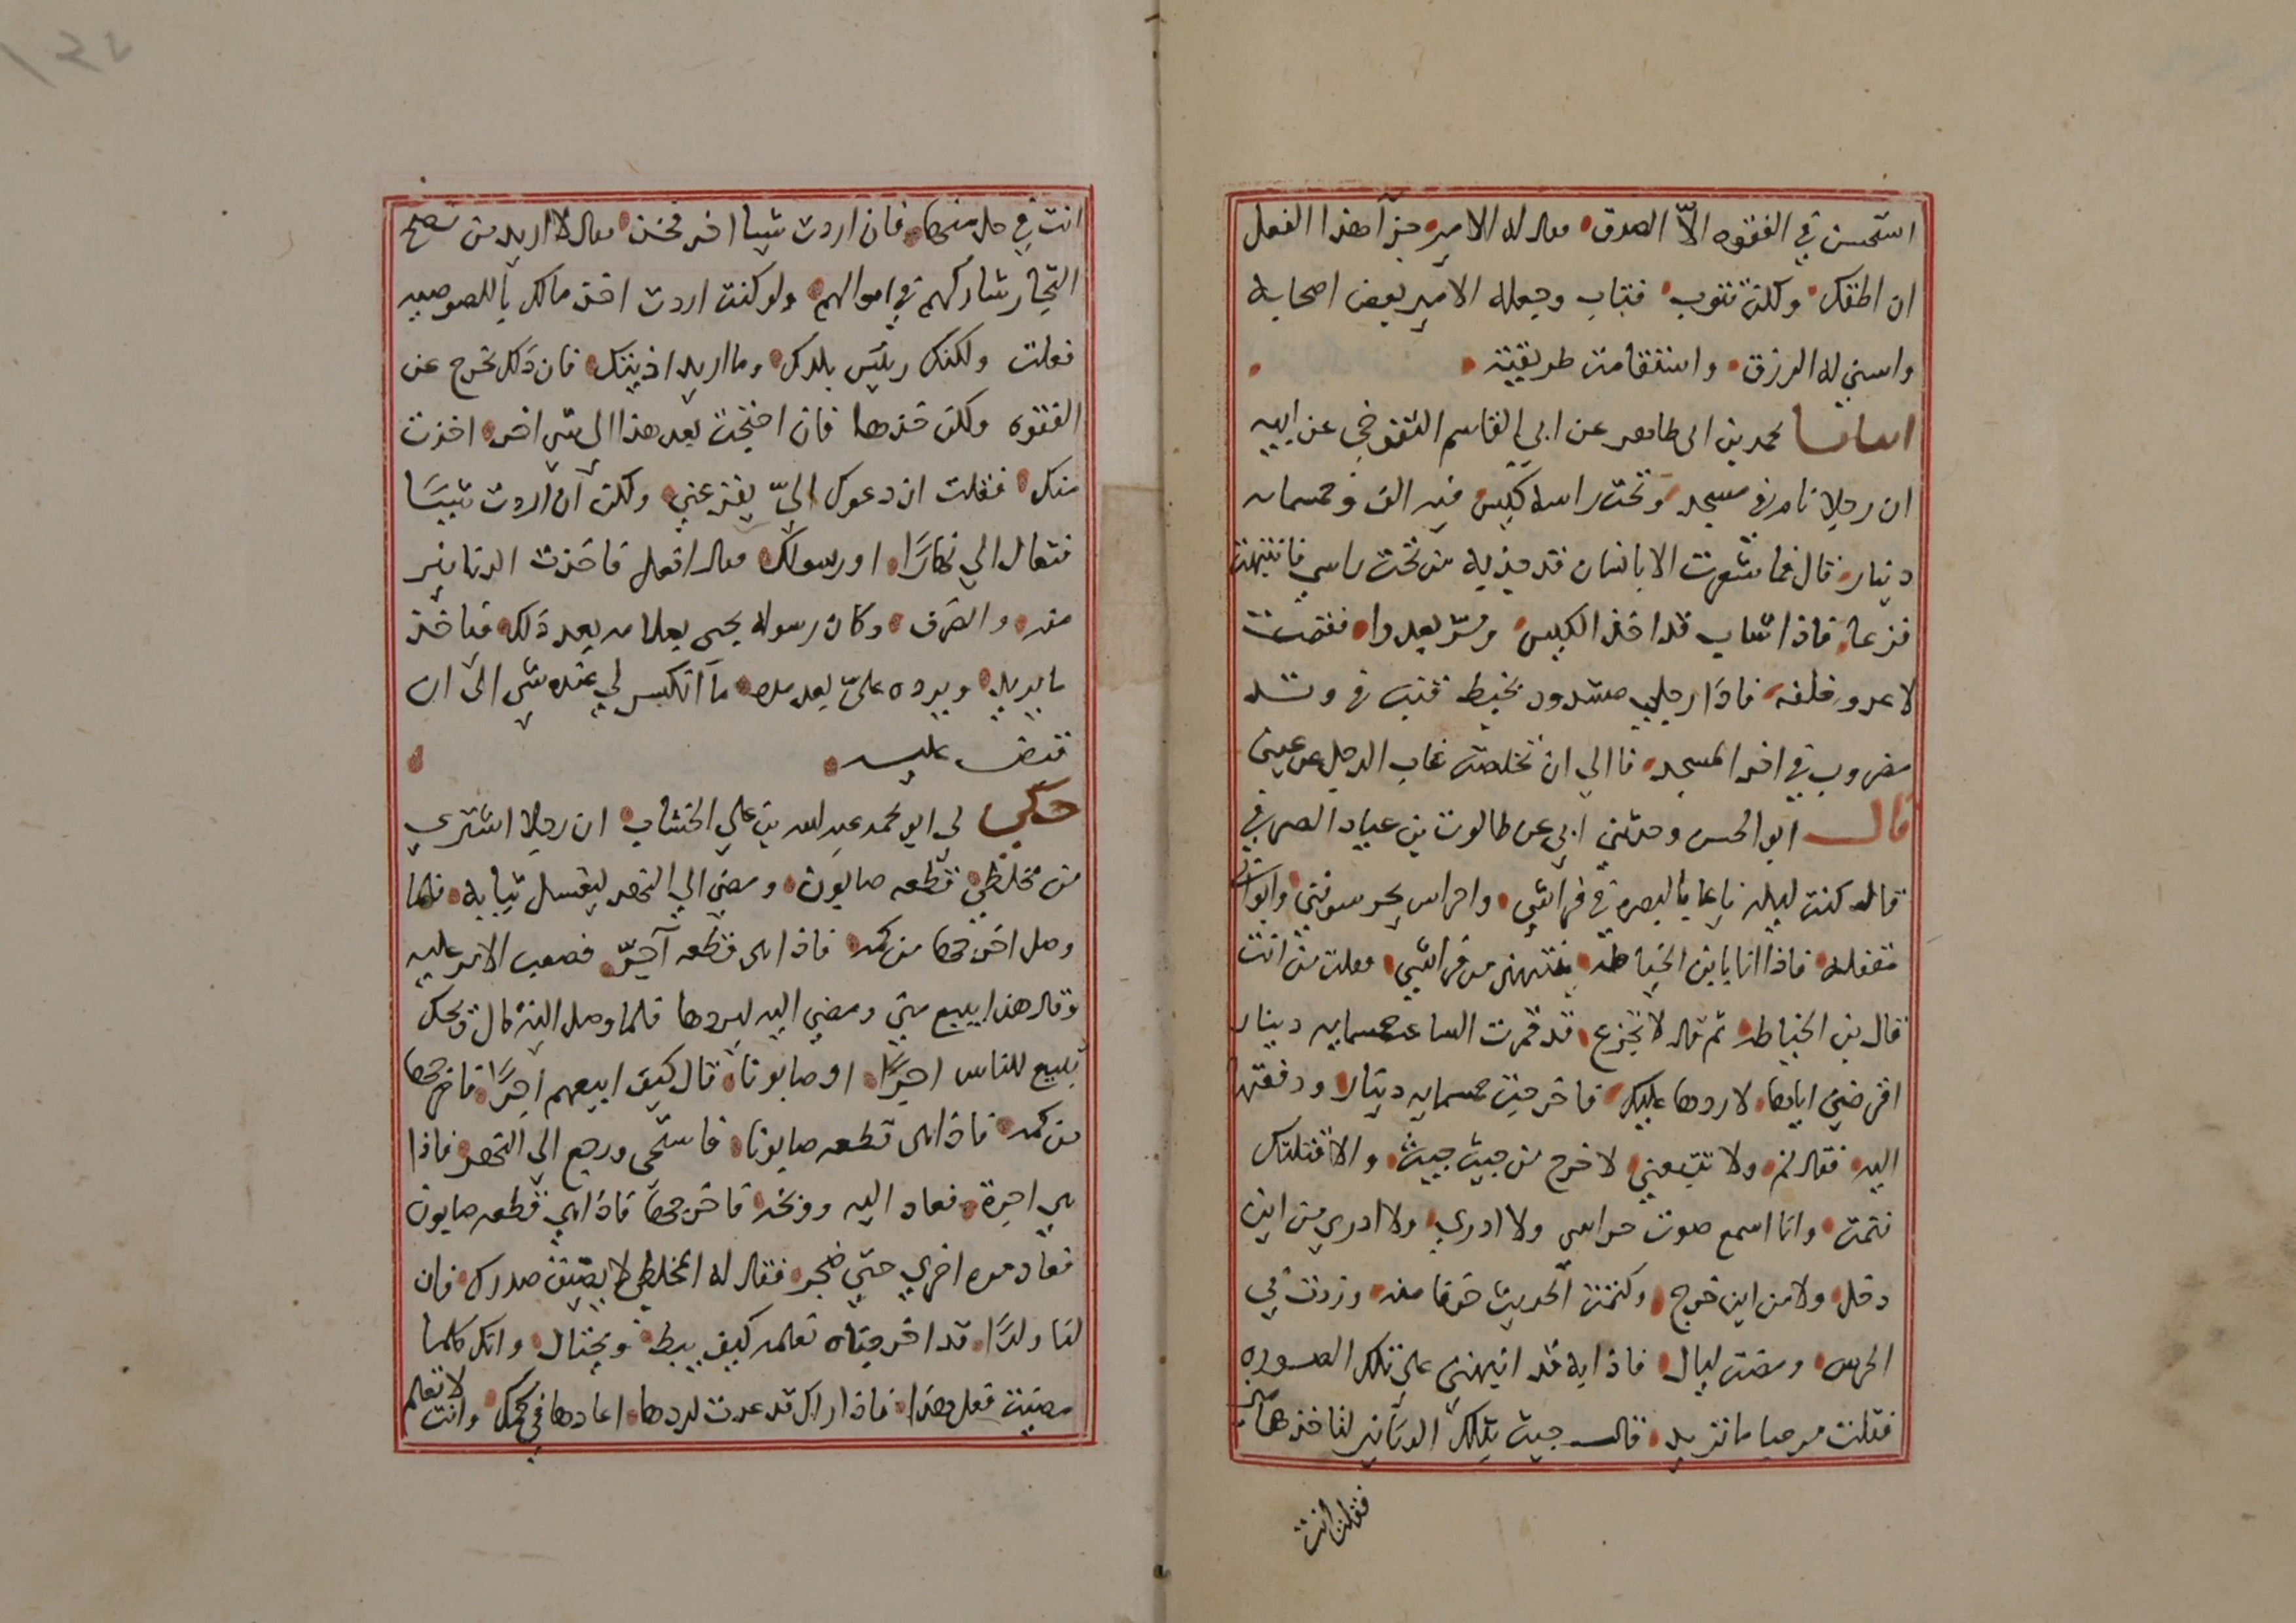 استحسن في الفتوه الاّ الصدق فقال له الامير جزآ هذا الفعل
ان اطلقك ولكن تتوب فتاب وجعله الامير بعض اصحابه
واسني له الرزق واستقامت طريقته
محمد بن ابي طاهر عن ابي القاسم التنوخي عن ابيه
ان رجلا نام في مسجد وتحت راسه كيس فيه الف وخمسمايه
دينار قال فما شعرت الا بانسان قد جذبه من تحت راسي فانتبهت
فزعا فاذا شاب قد اخذ الكيس ومرّ يعدوا فقمت
لاعدو خلفه فاذا رجلي مشدود بخيط قنب في وتد
مضروب في اخر المسجد فالي ان تخلصت غاب الرجل عن عيني
قال ابو الحسن وحدثني ابي عن طالوت بن عباد الصرفي
قال كنت ليله نايما بالبصره في فراشي واحراسي يحرسونني وابوابي
مقفله فاذا انا بابن الخياطه ينبهني من فراشي فقلت من انت
قال بن الخياطه ثم قال لا تجزع قد قمرت الساعه خمسمايه دينار
اقرضني اياها لاردها عليك فاخرجت خمسمايه دينار ودفعتها
اليه فقال نم ولا تتبعني لاخرج من حيث جيت والا قتلتك
فنمت وانا اسمع صوت حراسي ولا ادري ولا ادري من اين
دخل ولا من اين خرج وكتمت الحديث خوفا منه وزدت في
الحرس ومضت ليال فاذا به قد انبهني علي تلك الصوره
فقلت مرحبا ما تريد قال جيت بتلك الدنانير لتاخذها مني
فقلت انت
انت في حل منها فان اردت شيا اخر فخذ فقال لا اريد من نصح
التجار شاركهم في اموالهم ولو كنت اردت اخذ مالك باللصوصيه
فعلت ولكنك رئيس بلدك وما اريد اذيتك فان ذلك يخرج عن
الفتوه ولكن خذها فان احتجت بعد هذا الي شي اخر اخذت
منك فقلت ان دعوك اليّ يفزعني ولكن ان اردت شيئا
فتعال الي نهارًا او رسولك فقال افعل فاخذت الدنانير
منه والصرف وكان رسوله يجي بعلامه بعد ذلك فياخذ
ما يريد ويرده علىّ بعد مده مآ انكسر لي عنده شي الي ان
قبض عليه
حكي لي ابو محمد عبد الله بن علي الخشاب ان رجلا اشتري
من مخلطي قطعه صابون ومضي الي النهر ليغسل ثيابه فلما
وصل اخرجها من كمه فاذا هي قطعه آجرّ فصعب الامر عليه
وقال هذا يبيع شي ومضي اليه ليردها فلما وصل اليه قال ويحك
تبيع للناس اجرًا او صابونا قال كيف ابيعهم اجرًا فاخرجها
من كمه فاذا هي قطعه صابونا فاستحى ورجع الي النهر فاذا
هي اجرة فعاد اليه ووبخه فاخرجها فاذا هي قطعه صابون
فعاد مره اخري حتي ضجر فقال له المخلطي لا يضيق صدرك فان
لنا ولدًا قد اخرجناه نعلمه كيف يبط ويحتال وانك كلما
مضيت فعل هذا فاذا راك قد عدت لردها اعادها في كمك وانت لا تعلم